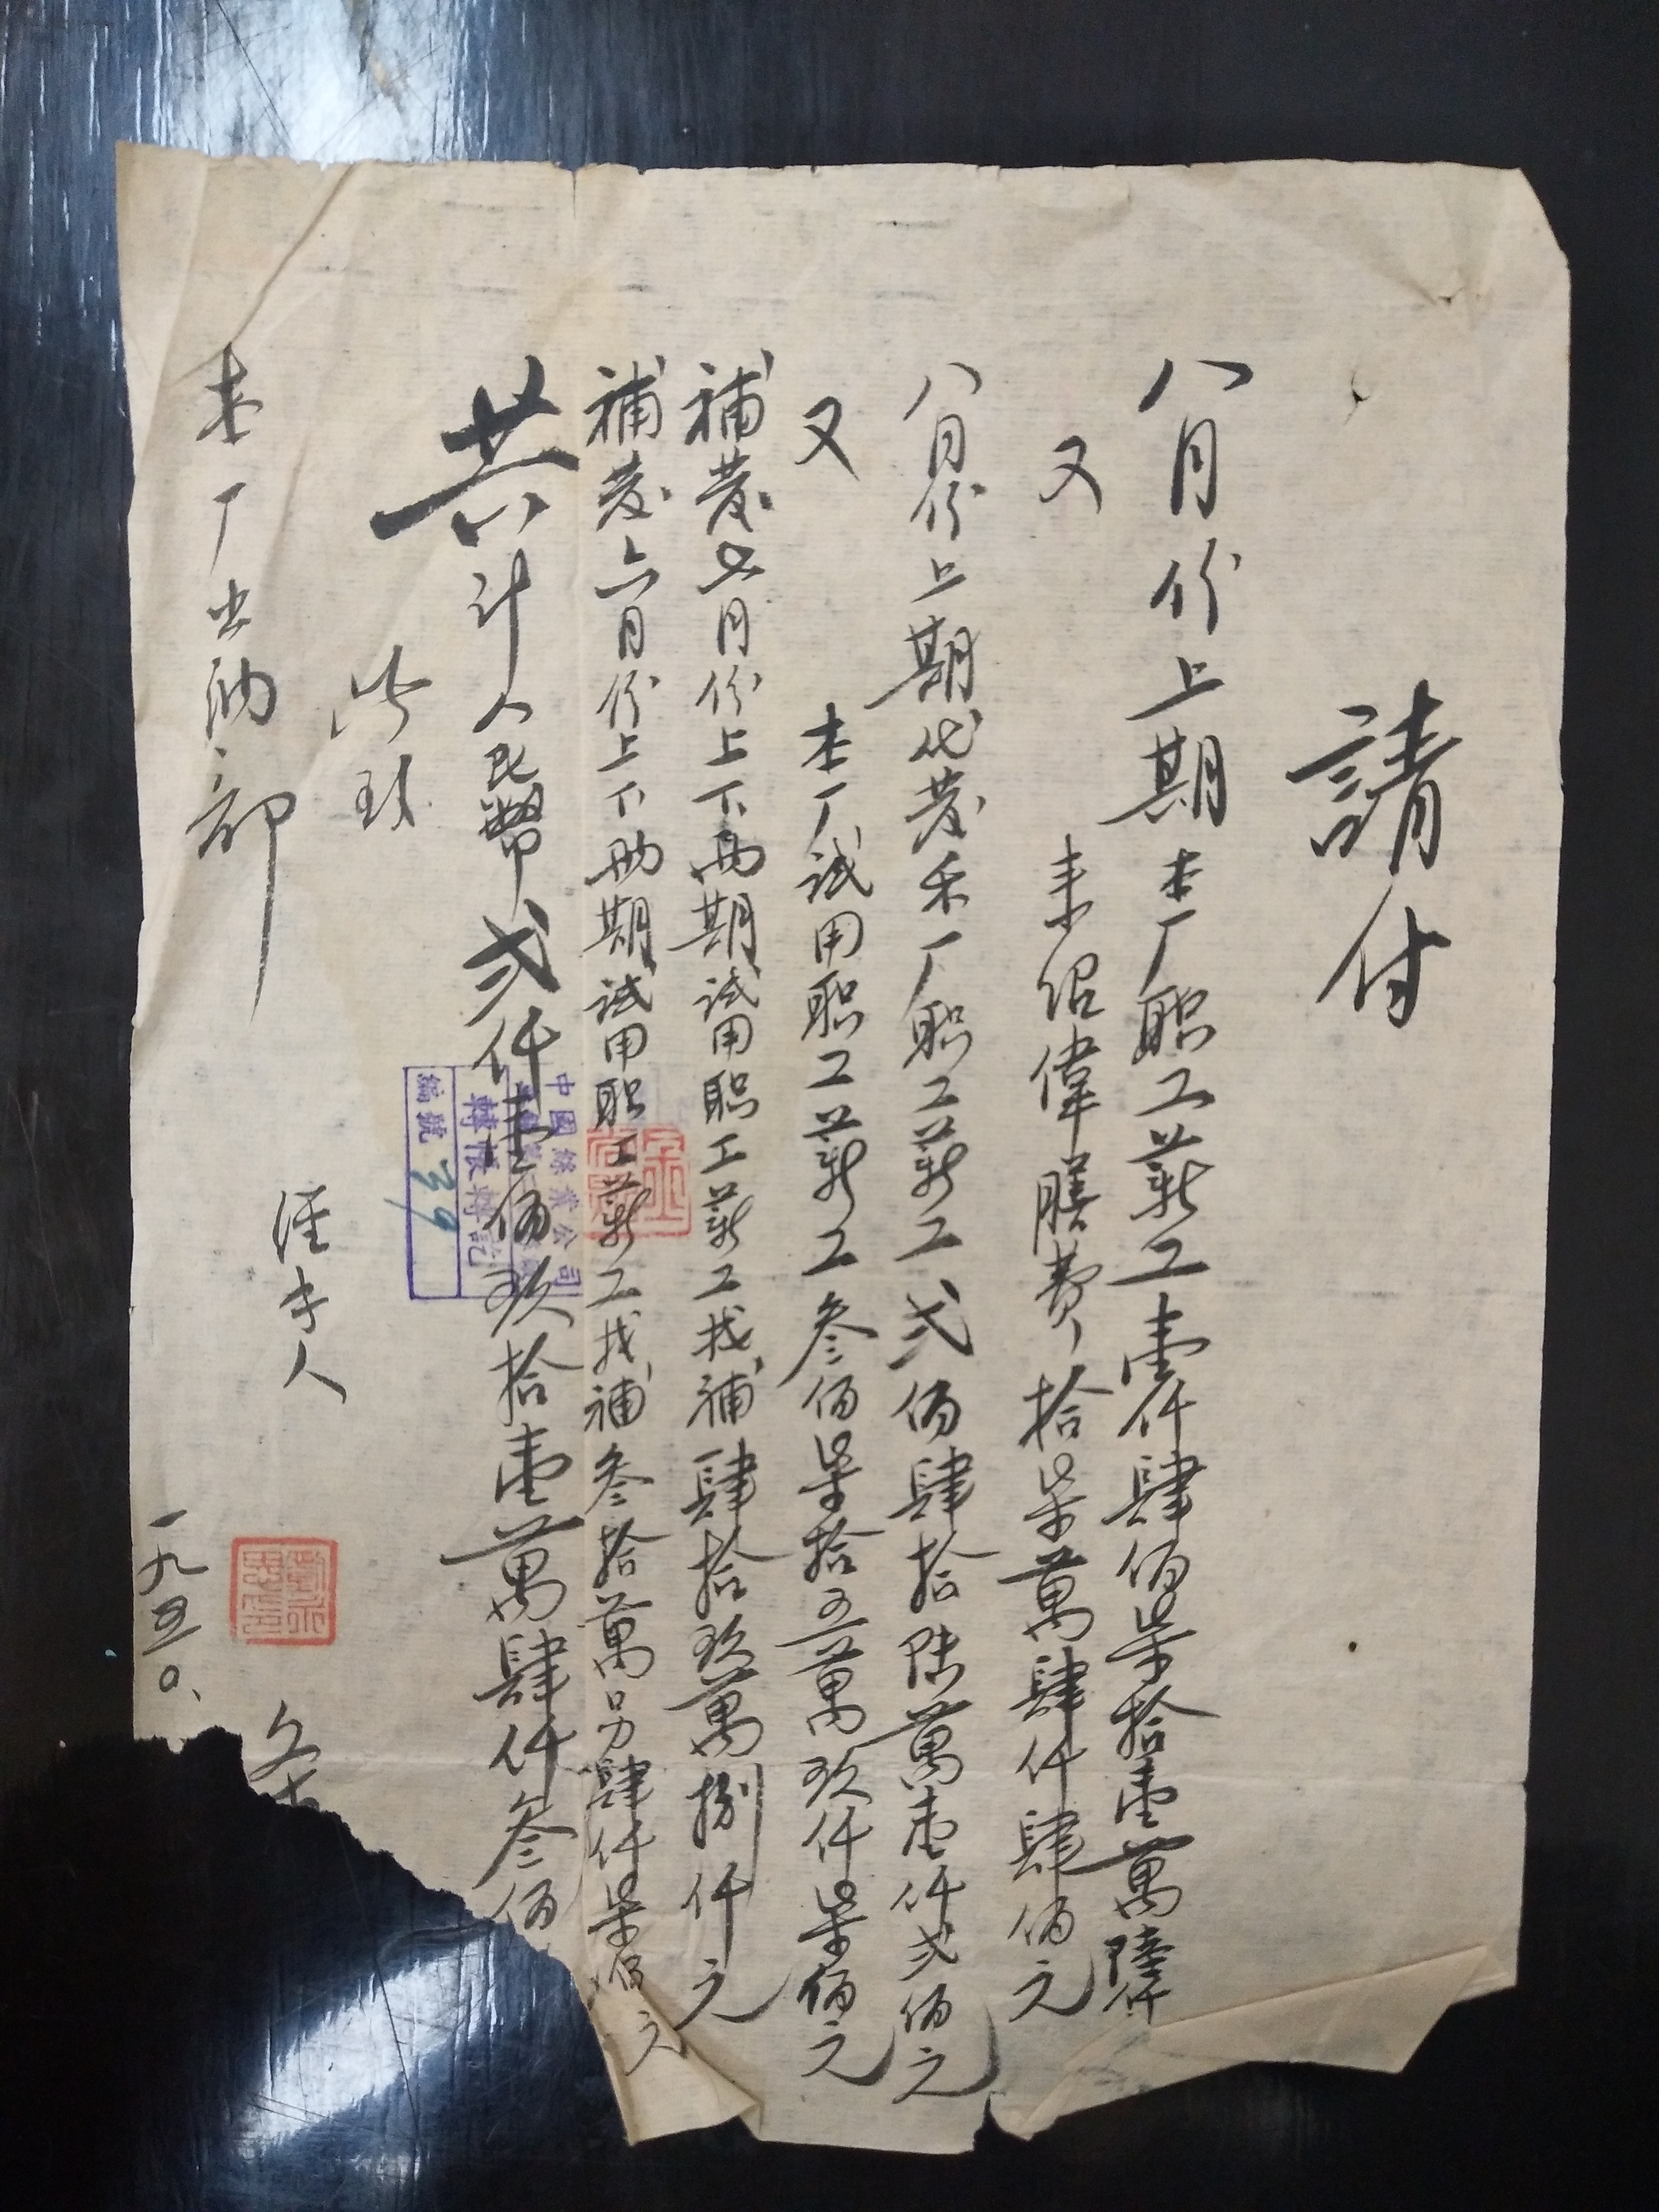 請付
八月份上期本厂职工薪工壹仟肆佰柒拾壹萬陸仟
又 紹偉膳費拾柒萬肆仟肆佰元
八月份上期代发禾厂职工薪工弍佰肆拾陆萬壹仟弍佰元
又 本厂試用职工薪工叁佰柒拾五萬玖仟柒佰元
補发七月份上下两期試用职工薪工找補肆拾玖萬捌仟元
補发六月份上下两期試用职工薪工找補叁拾萬另肆仟柒佰元
共计人民幣弍仟壹佰玖拾壹萬肆仟叁佰
此致
本厂出納部
經手人
一九五〇、
中國蠶業公司
轉帳轉記
編號 39